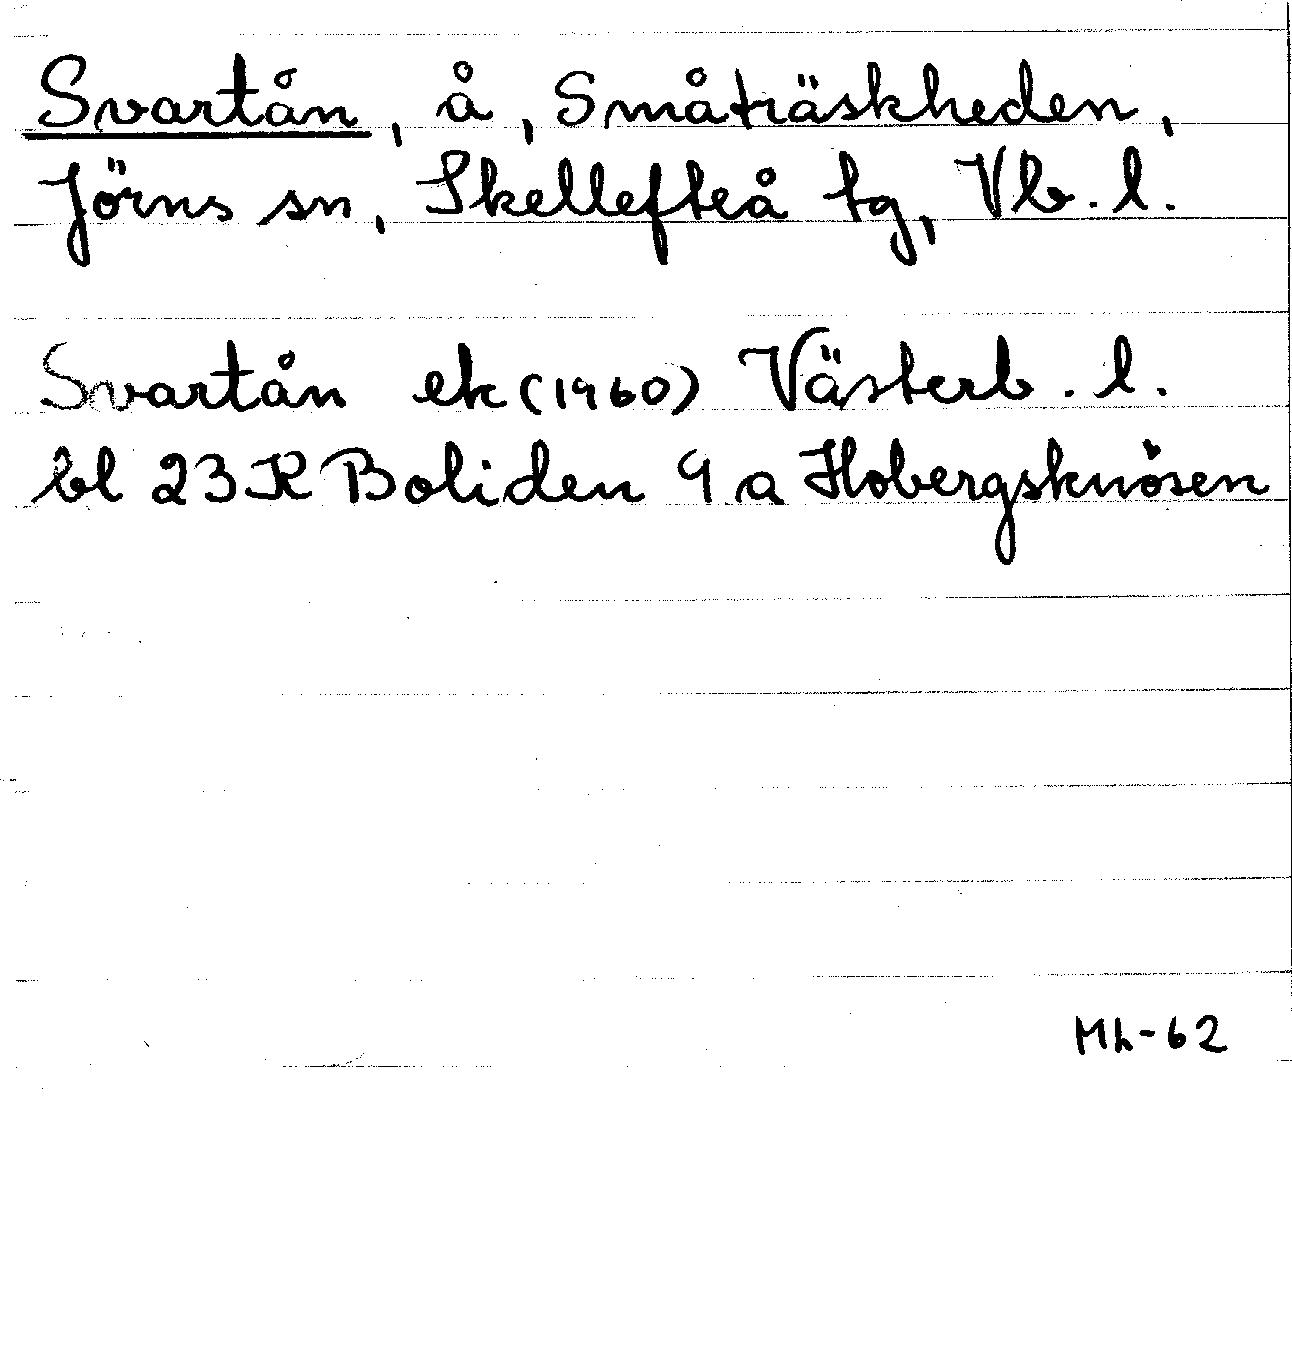 Svartån, å, Småträskheden,
Jörns sn, Skellefteå tg, Vb. l.
Svartån ek (1960) Västerb. l.
bl 23K Boliden 9 a Hobergsknösen
Mh-62